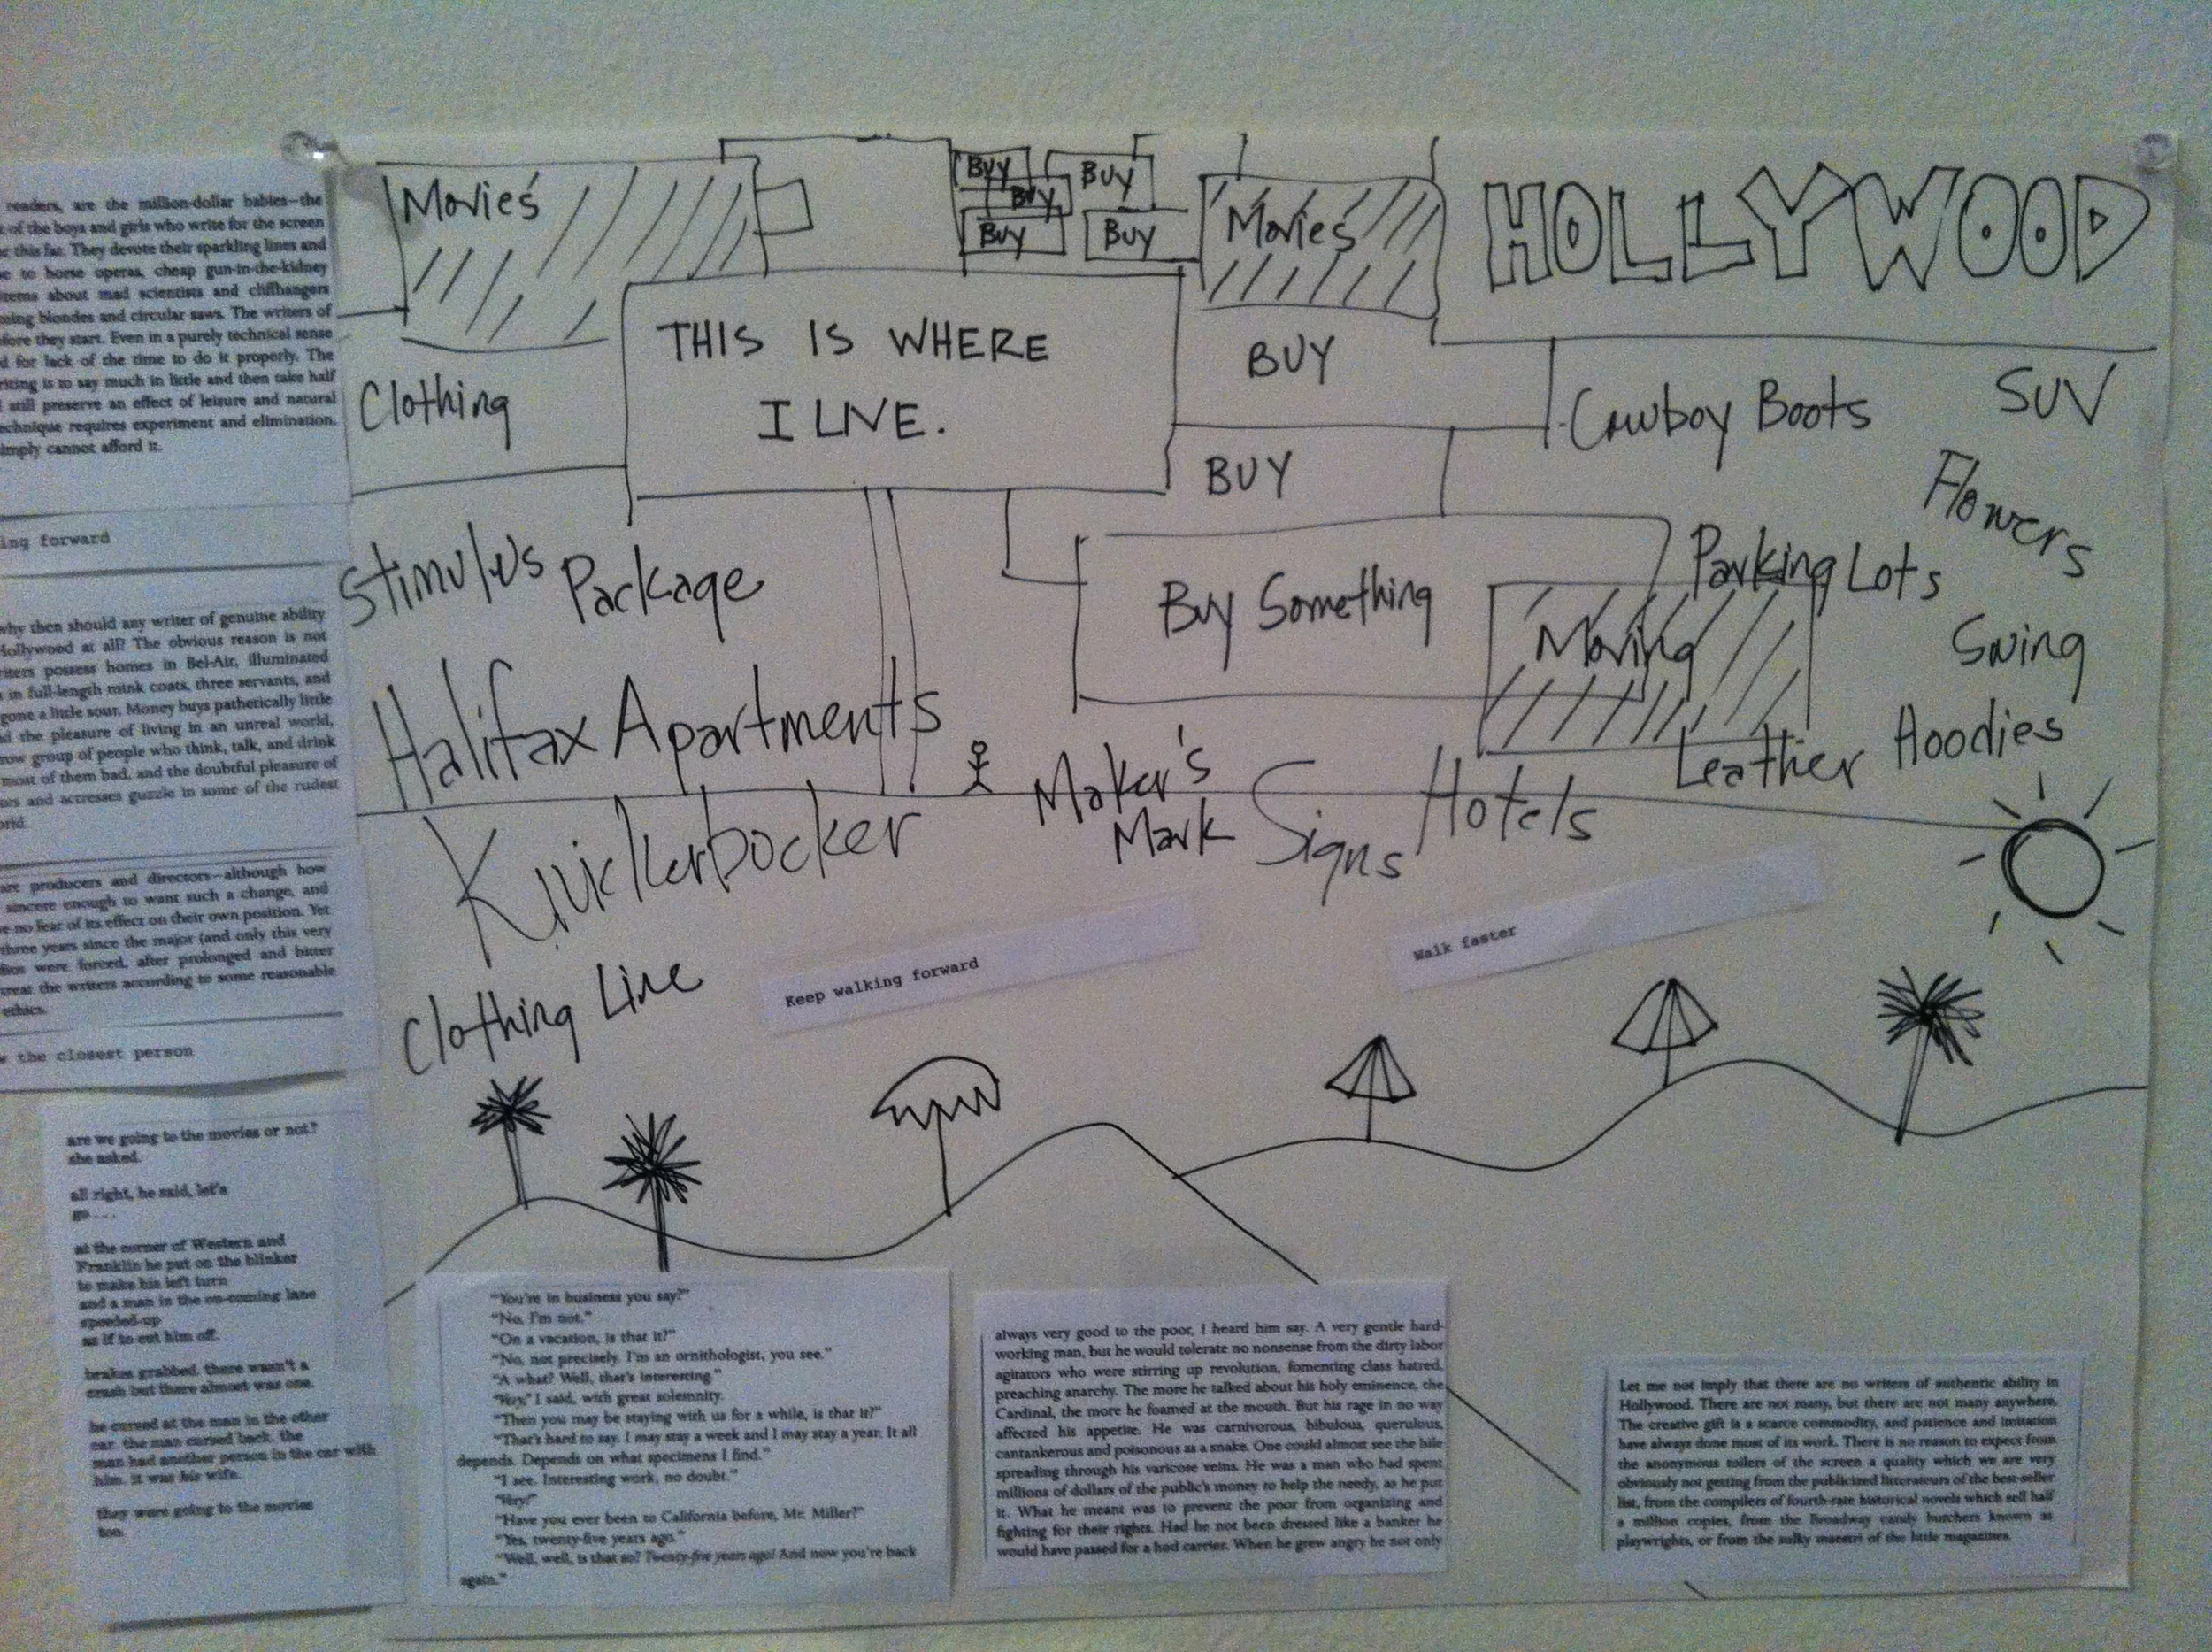 Movies
BUY
BUY
BUY
BUY
BUY
Movies
HOLLYWOOD
THIS IS WHERE
I LIVE.
BUY
BUY
Clothing
Cowboy Boots
SUV
Flowers
Stimulus Package
Buy Something
Moving
Parking Lots
Swing
Halifax Apartments
Maker's
Mark
Signs
Hotels
Leather
Hoodies
Knickerbocker
Clothing Line
Keep walking forward
Walk faster
readers, are the million-dollar babies—the
of the boys and girls who write for the screen
this far. They devote their sparkling lines and
to horse operas, cheap gun-in-the-kidney
about mad scientists and cliffhangers
blondes and circular saws. The writers of
before they start. Even in a purely technical sense
for lack of the time to do it properly. The
is to say much in little and then take half
still preserve an effect of leisure and natural
technique requires experiment and elimination.
simply cannot afford it.
ing forward
why then should any writer of genuine ability
Hollywood at all? The obvious reason is not
possess homes in Bel-Air, illuminated
in full-length mink coats, three servants, and
gone a little sour. Money buys pathetically little
the pleasure of living in an unreal world,
group of people who think, talk, and drink
most of them bad, and the doubtful pleasure of
and actresses guzzle in some of the rudest
are producers and directors—although how
sincere enough to want such a change, and
no fear of its effect on their own position. Yet
three years since the major (and only this very
were forced, after prolonged and bitter
treat the writers according to some reasonable
ethics.
the closest person
are we going to the movies or not?
she asked.
all right, he said, let's
go . . . .
at the corner of Western and
Franklin he put on the blinker
to make his left turn
and a man in the on-coming lane
speeded-up
as if to cut him off.
brakes grabbed. there wasn't a
crash but there almost was one.
he cursed at the man in the other
car. the man cursed back. the
man had another person in the car with
him. it was his wife.
they were going to the movies
too.
"You're in business you say?"
"No, I'm not."
"On a vacation, is that it?"
"No, not precisely. I'm an ornithologist, you see."
"A what? Well, that's interesting."
"Very," I said, with great solemnity.
"Then you may be staying with us for a while, is that it?"
"That's hard to say. I may stay a week and I may stay a year. It all
depends. Depends on what specimens I find."
"I see. Interesting work, no doubt."
"Very!"
"Have you ever been to California before, Mr. Miller?"
"Yes, twenty-five years ago."
"Well, well, is that so? Twenty-five years ago! And now you're back
again."
always very good to the poor, I heard him say. A very gentle hard-
working man, but he would tolerate no nonsense from the dirty labor
agitators who were stirring up revolution, fomenting class hatred,
preaching anarchy. The more he talked about his holy eminence, the
Cardinal, the more he foamed at the mouth. But his rage in no way
affected his appetite. He was carnivorous, bibulous, querulous,
cantankerous and poisonous as a snake. One could almost see the bile
spreading through his varicose veins. He was a man who had spent
millions of dollars of the public's money to help the needy, as he put
it. What he meant was to prevent the poor from organizing and
fighting for their rights. Had he not been dressed like a banker he
would have passed for a hod carrier. When he grew angry he not only
Let me not imply that there are no writers of authentic ability in
Hollywood. There are not many, but there are not many anywhere.
The creative gift is a scarce commodity, and patience and imitation
have always done most of its work. There is no reason to expect from
the anonymous toilers of the screen a quality which we are very
obviously not getting from the publicized litterateurs of the best-seller
list, from the compilers of fourth-rate historical novels which sell half
a million copies, from the Broadway candy butchers known as
playwrights, or from the sulky maestri of the little magazines.